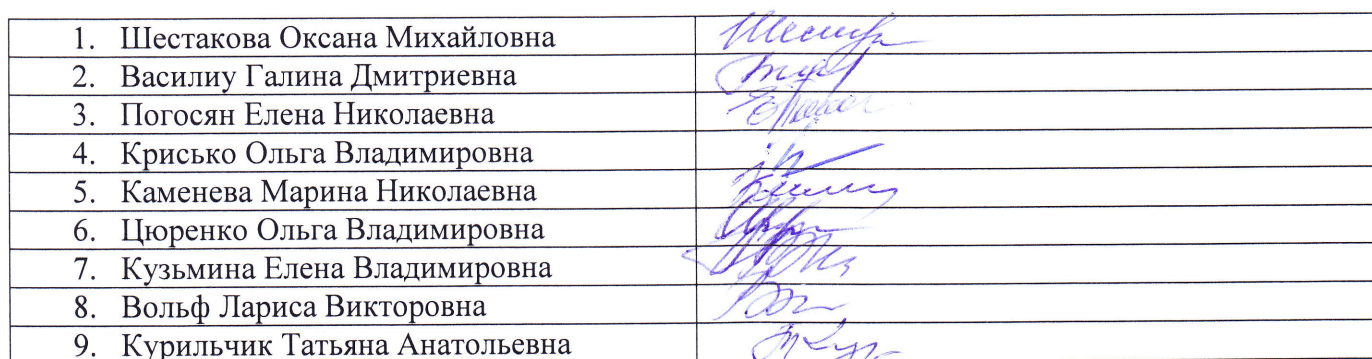 1. Шестакова Оксана Михайловна
2. Василиу Галина Дмитриевна
3. Погосян Елена Николаевна
4. Крисько Ольга Владимировна
5. Каменева Марина Николаевна
6. Цюренко Ольга Владимировна
7. Кузьмина Елена Владимировна
8. Вольф Лариса Викторовна
9. Курильчик Татьяна Анатольевна